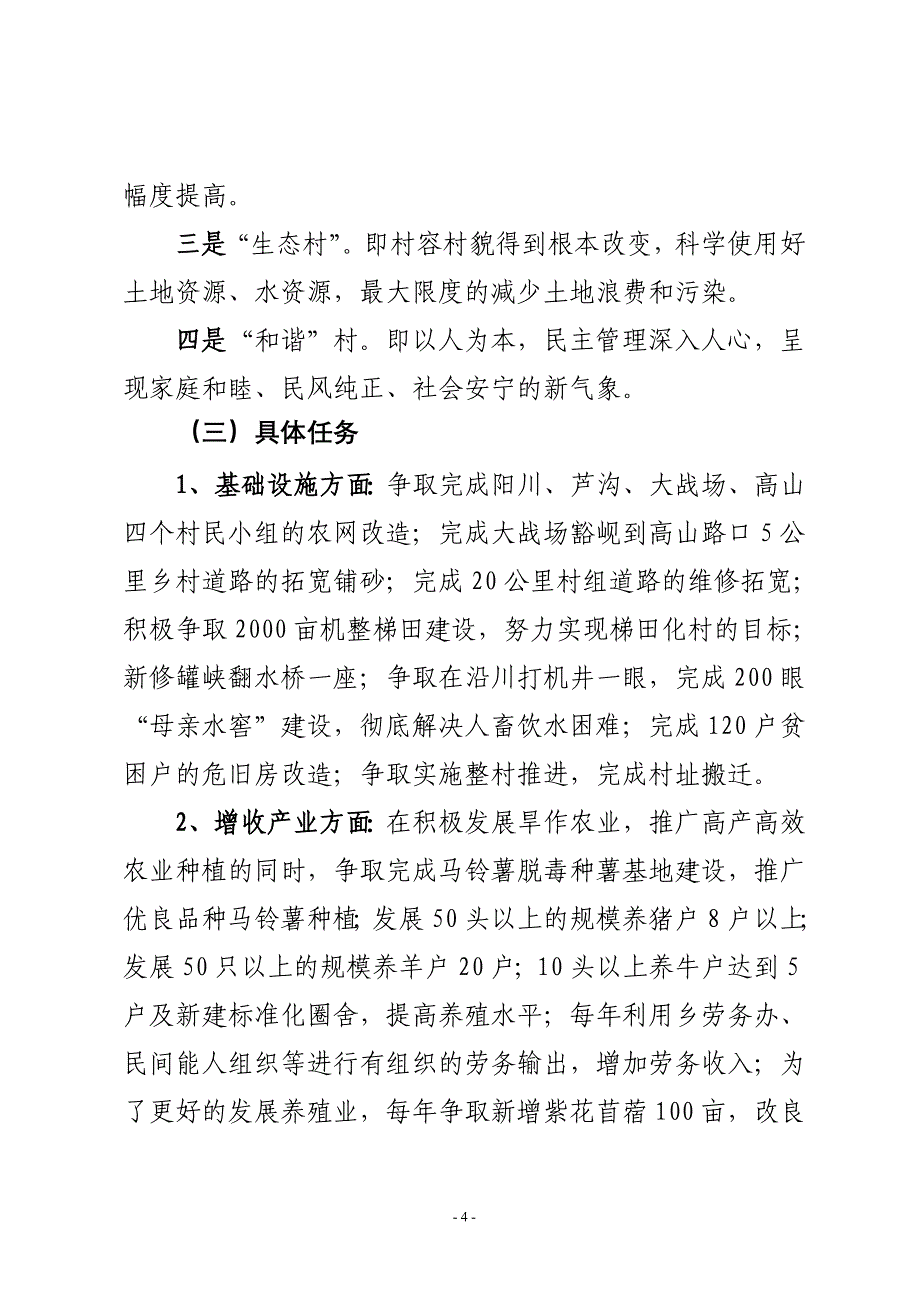 幅度提高。
三是“生态村”。即村容村貌得到根本改变，科学使用好
土地资源、水资源，最大限度的减少土地浪费和污染。
四是“和谐”村。即以人为本，民主管理深入人心，呈
现家庭和睦、民风纯正、社会安宁的新气象。
（三）具体任务
1、基础设施方面：争取完成阳川、芦沟、大战场、高山
四个村民小组的农网改造；完成大战场豁岘到高山路口 5 公
里乡村道路的拓宽铺砂；完成 20 公里村组道路的维修拓宽；
积极争取 2000 亩机整梯田建设，努力实现梯田化村的目标；
新修罐峡翻水桥一座；争取在沿川打机井一眼，完成 200 眼
“母亲水窖”建设，彻底解决人畜饮水困难；完成 120 户贫
困户的危旧房改造；争取实施整村推进，完成村址搬迁。
2、增收产业方面：在积极发展旱作农业，推广高产高效
农业种植的同时，争取完成马铃薯脱毒种薯基地建设，推广
优良品种马铃薯种植；发展 50 头以上的规模养猪户 8 户以上；
发展 50 只以上的规模养羊户 20 户；10 头以上养牛户达到 5
户及新建标准化圈舍，提高养殖水平；每年利用乡劳务办、
民间能人组织等进行有组织的劳务输出，增加劳务收入；为
了更好的发展养殖业，每年争取新增紫花苜蓿 100 亩，改良
- 4 -